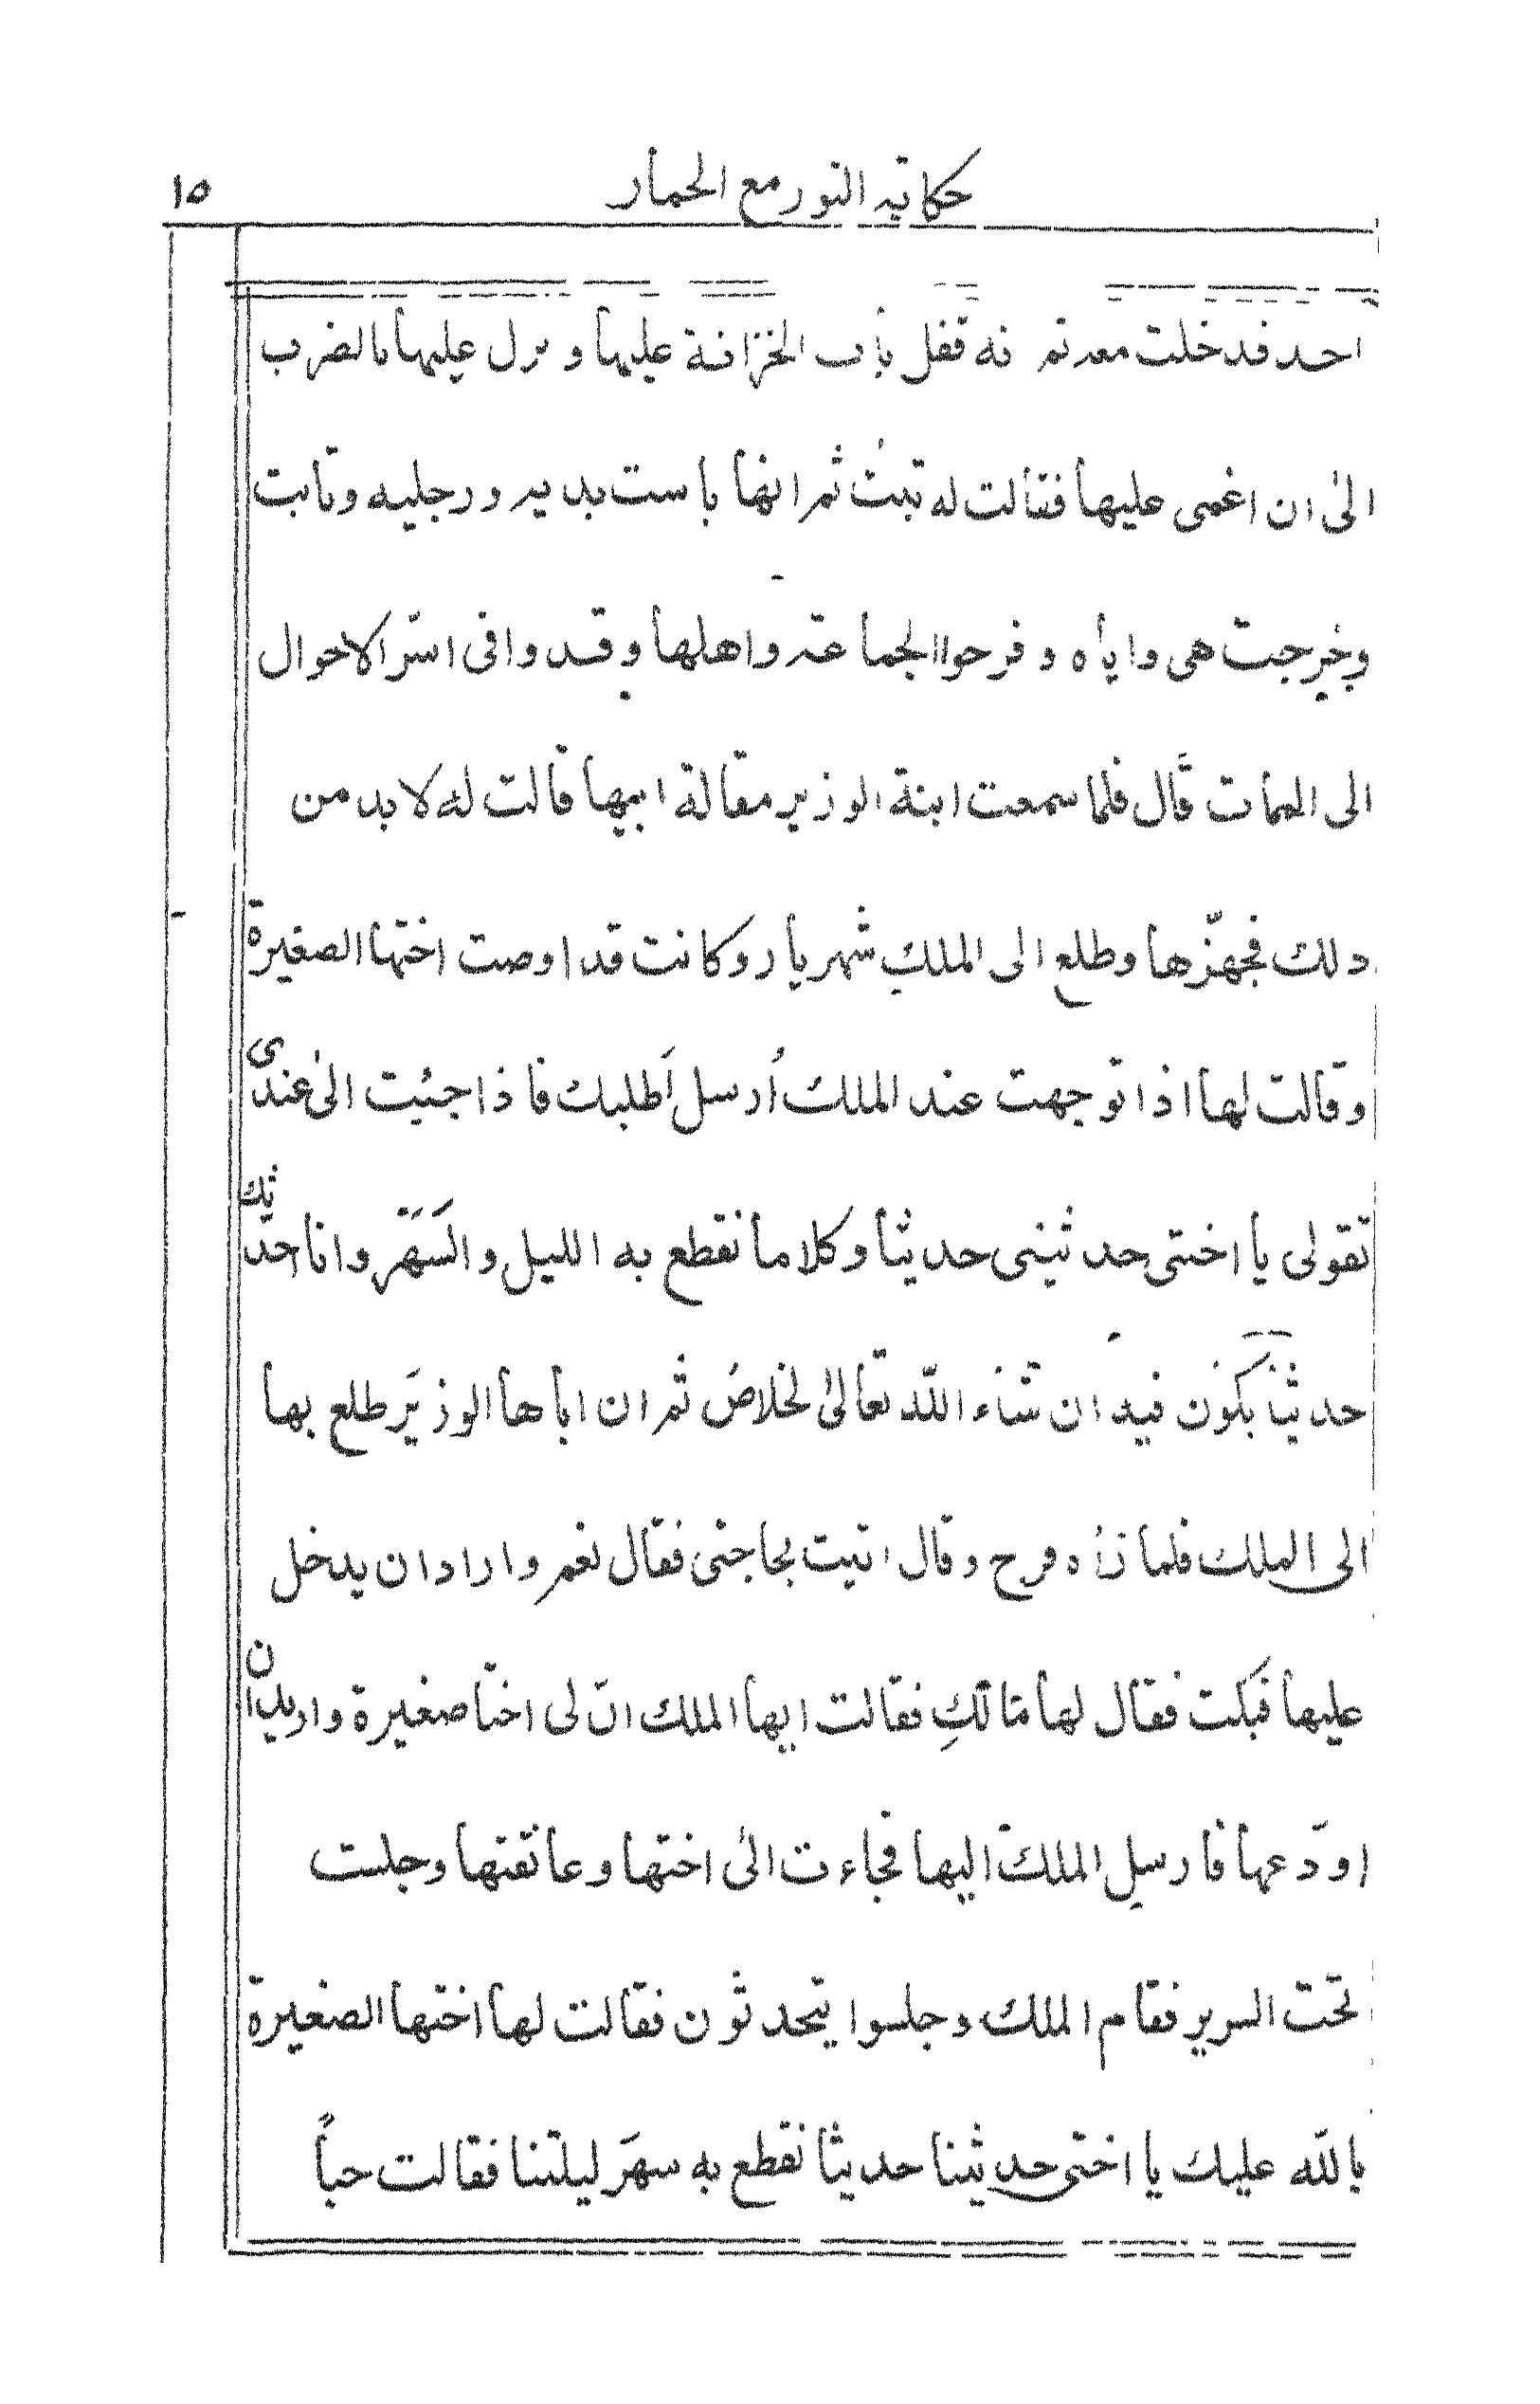 حكاية الثور مع الحمار ١٥
احد فدخلت معه ثم انه قفل باب الخزانة عليها و نزل عليها بالضرب
الى ان اغمى عليها فقالت له تبت ثم انها باست يديه و رجليه وتابت
وخرجت هى واياه و فرحوا الجماعة واهلها و قد وا فى اسرّ الاحوال
الى الممات قال فلما سمعت ابنة الوزير مقالة ابيها قالت له لا بد من
ذلك فجهّزها وطلع الى الملك شهريار وكانت قد اوصت اختها الصغيرة
وقالت لها اذا توجهت عند الملك أرسل أطلبك فاذا جئيت الى عندى
تقولى يا اختى حدثينى حديثا وكلاما نقطع به الليل والسهر وانا احدّثك
حديثا يكون فيه ان شاء اللّه تعالى لخلاص ثم ان اباها الوزير طلع بها
الى الملك فلما رأه فرح وقال اتيت بحاجتى فقال نعم واراد ان يدخل
عليها فبكت فقال لها مَا لَكِ فقالت ايها الملك انّ لى اختا صغيرة واريد ان
اودّعها فارسل الملك اليها فجاءت الى اختها وعانقتها وجلست
تحت السرير فقام الملك وجلسوا يتحدثون فقالت لها اختها الصغيرة
باللّه عليك يا اختى حدثينا حديثا نقطع به سهر ليلتنا فقالت حباً